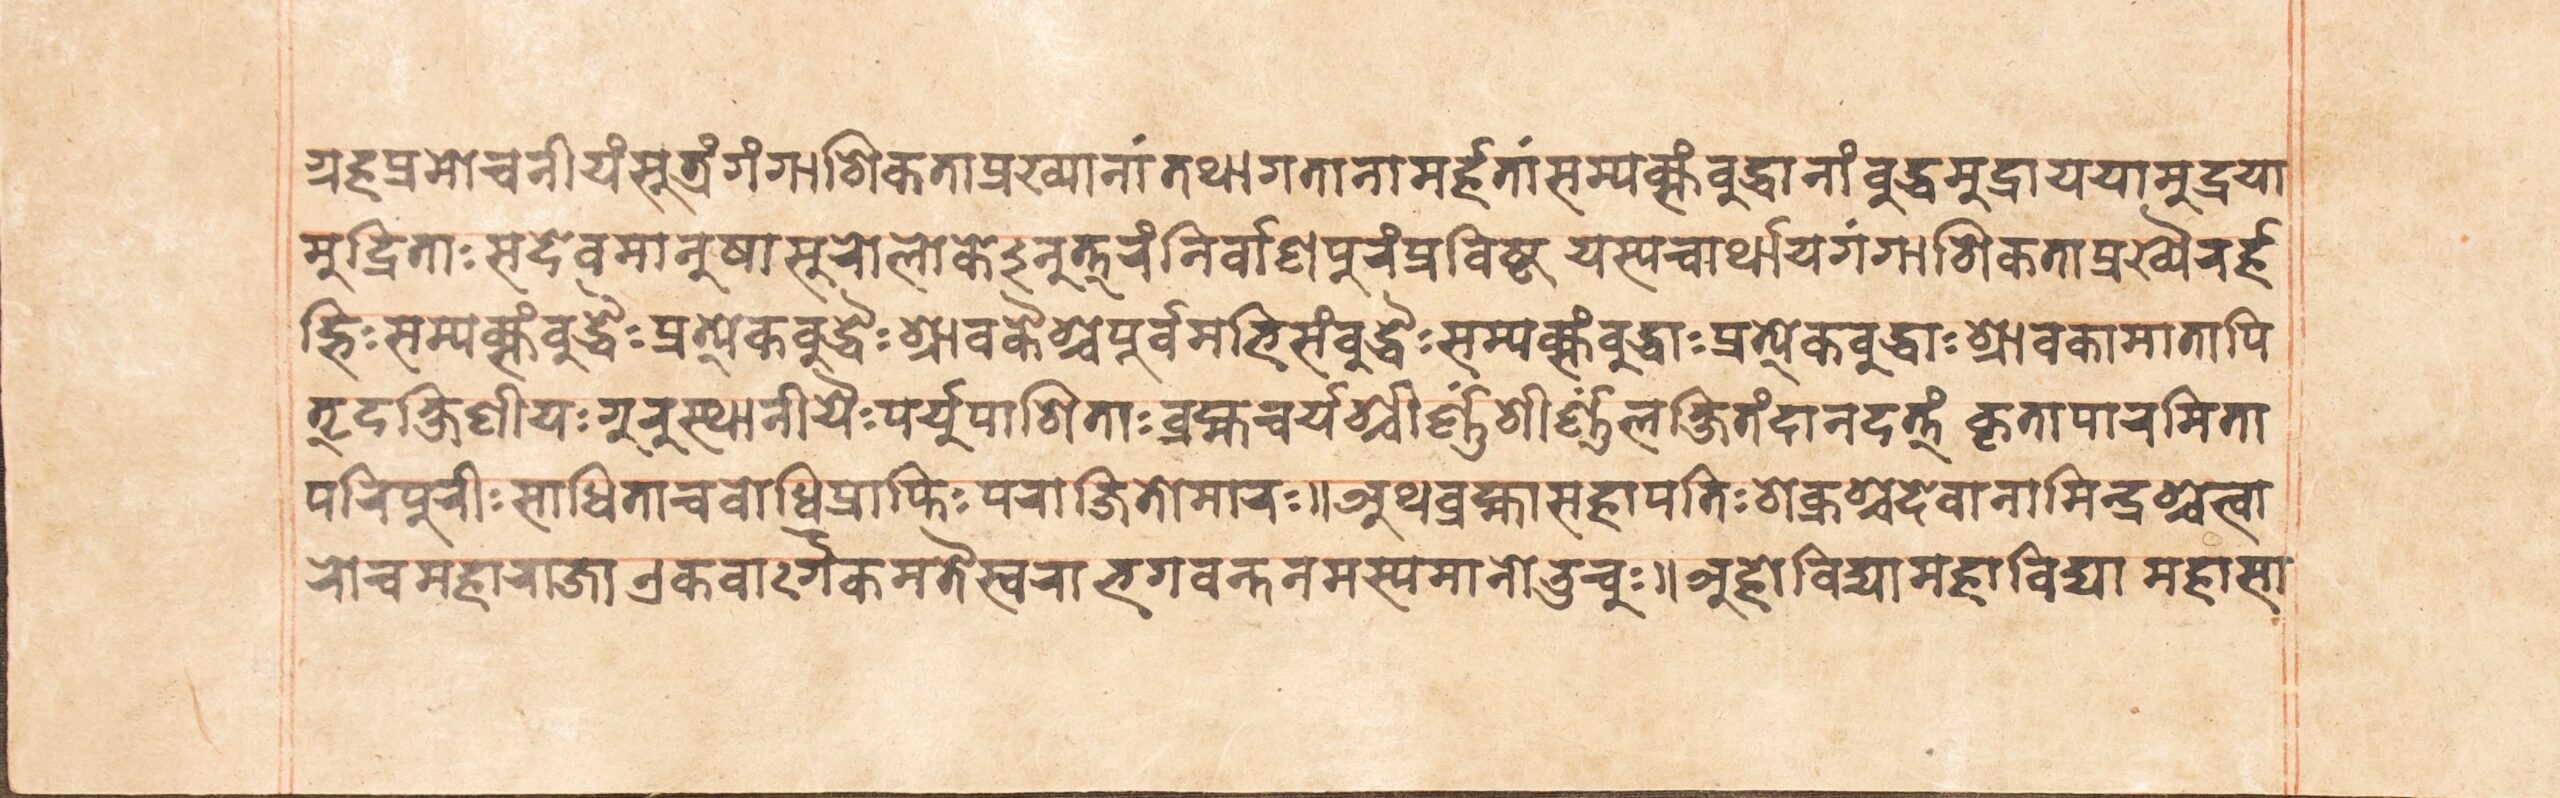 ग्रहप्रमोचनीयंसूत्रंगंगाशिकताप्रख्यानांतथागतानामर्हतांसम्यक्संबुद्धानांबुद्धमुद्रायययामुद्रया
मुद्रिताःसदेवमानुषासुरोलोकेऽनुत्तरंनिर्वाणपुरंप्रविष्ट यस्यचार्थायगंगाशिकताप्रख्यैरर्ह
द्भिःसम्यक्संबुद्धैःप्रत्येकबुद्धैःश्रावकैश्चपूर्वमभिसंबुद्धैःसम्यक्संबुद्धाःप्रत्येकबुद्धाःश्रावकामातापि
तृदक्षिणीयःगुरुस्थानीयैःपर्युपाशिताःब्रह्मचर्यश्चीर्ण्णंशीर्ण्णंलक्षितंदानदत्तं कृतापारमिता
परिपुरीःसाधिताचबोधिप्राप्तिःपराजितोमारः॥अथब्रह्मासहापतिःशक्रश्चदेवानामिन्द्रश्चत्वा
रोचमहाराजाएकवाग्‌र्गैकमतैस्वराभगवन्तनमस्यमानोवुचुः॥अहोविद्यामहाविद्या महासा